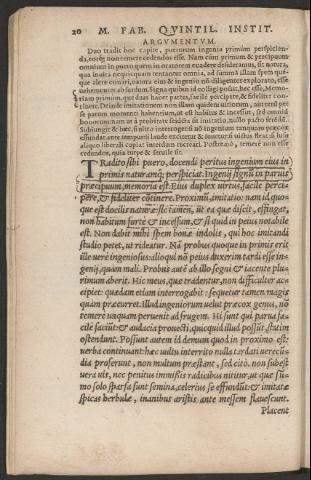 20 M. FAB. QVINTIL. INSTIT.
ARGVMENTVM.
Duo tradit hoc capite, puerorum ingenia primùm perspicien-
da, eorúq; non temere cedendos esse. Nam cùm primùm & præcipuum
omnium in puero quem in oratorem euadere desideramus, sit natura,
qua inuita nequicquam tentantur omnia, ad summā illam spem quæ-
que alere cuniti, natura eius & ingenio nō diligenter explorato, esse
uehementer absurdum. Signa quibus id colligi possit, hæc esse, Memo-
riam primùm, quę duas habet partes, facilè percipere, & fideliter con-
tinere. Deinde imitationem non illam quidem uitiorum, aut itend per-
se patum momenti habentium, ut est habitus & incessus, sed omnid
bonorum nam ut à probitate studiū & imitatio, nullo pacto sciēdā.
Subiungit & hoc, finito interrogationi nō ingenium tanquam præcox
effundat ante tempus si laude excitetur & incurrat uitius fleat si huic
aliquo liberali captus interdum recreari. Postremò, temere non esse
cedendos, quia turpe & seruile sit.
TRadito sibi puero, docendi peritus ingenium eius in
primis naturamq́; perspiciat. Ingenij signū in paruis
præcipuum, memoria est. Eius duplex uirtus, facile perci
pere, & fideliter cōtinere. Proximū, imitatio: nam id quo-
que est docilis naturæ: sic tamen, ut ea quæ discit, effingat,
non habitum fortè & incessum, & si quid in petus notabile
est. Non dabit mihi spem bonæ indolis, qui hoc imitandi
studio petet, ut rideatur. Nā probus quoque in primis erit
ille uerè ingeniosus: alioqui nō peius duxerim tardi esse in-
genij, quàm mali. Probus autē ab illo segni & iacente plu-
rimum aberit. Hic meus, quæ tradentur, non difficulter ac
cipiet: quædam etiam interrogabit: sequetur tamen magis
quàm præcurret. Illud ingeniorum uelut præcox genus, nō
temere unquam peruenit ad frugem. Hi sunt qui parua fa-
cilè faciūt: & audacia prouecti, quicquid illud possūt, statim
ostendunt. Possunt autem id demum quod in proximo est:
uerba continuant: hæc uultu interrito nulla tardati uerecū-
dia proferunt, non multum præstant, sed citò. non subest
uera uis, nec penitus immissis radicibus nititur, ut quæ sū-
mo solo sparsa sunt semina, celerius se effundūt: & imitatæ
spicas herbulæ, inanibus aristis ante messem flauescunt.
Placent